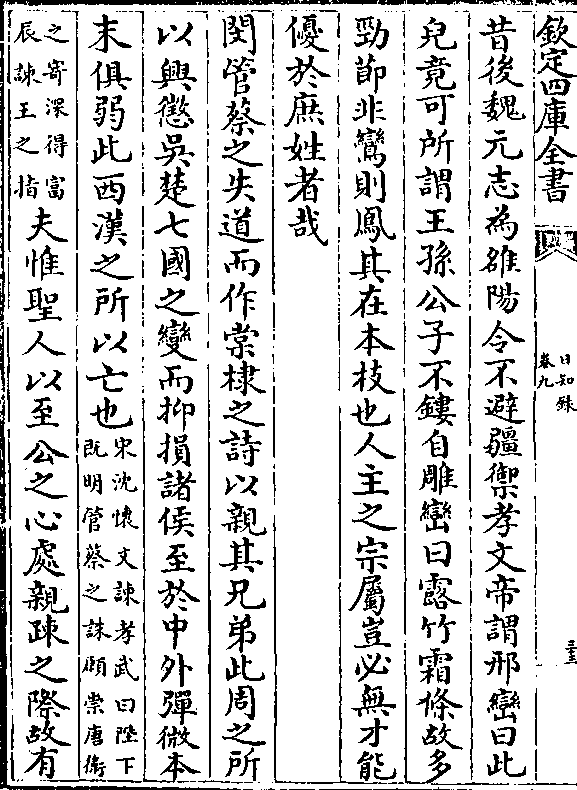 欽定四庫全書
日知錄
卷九
三三
昔後魏元志為雒陽令不避疆禦孝文帝謂邢巒曰此
兒竟可所謂王孫公子不鏤自雕巒曰露竹霜條故多
勁節非鸞則鳳其在本枝也人主之宗屬豈必無才能
優於庶姓者哉
閔管蔡之失道而作棠棣之詩以親其兄弟此周之所
以興懲吳楚七國之變而抑損諸侯至於中外彈微本
末俱弱此西漢之所以亡也宋沈懷文諫孝武曰陛下
既明管蔡之誅願崇唐衞
之寄深得富
辰諫王之指夫惟聖人以至公之心處親疎之際故有